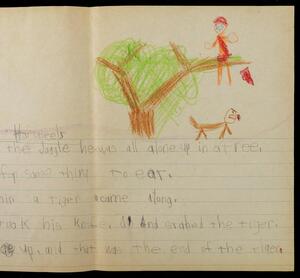 the jungle he was all alone up in a tree.
for some thing to eat.
a tiger came along.
took his knife, and stabed the tiger.
up, and that was the end of the tiger.